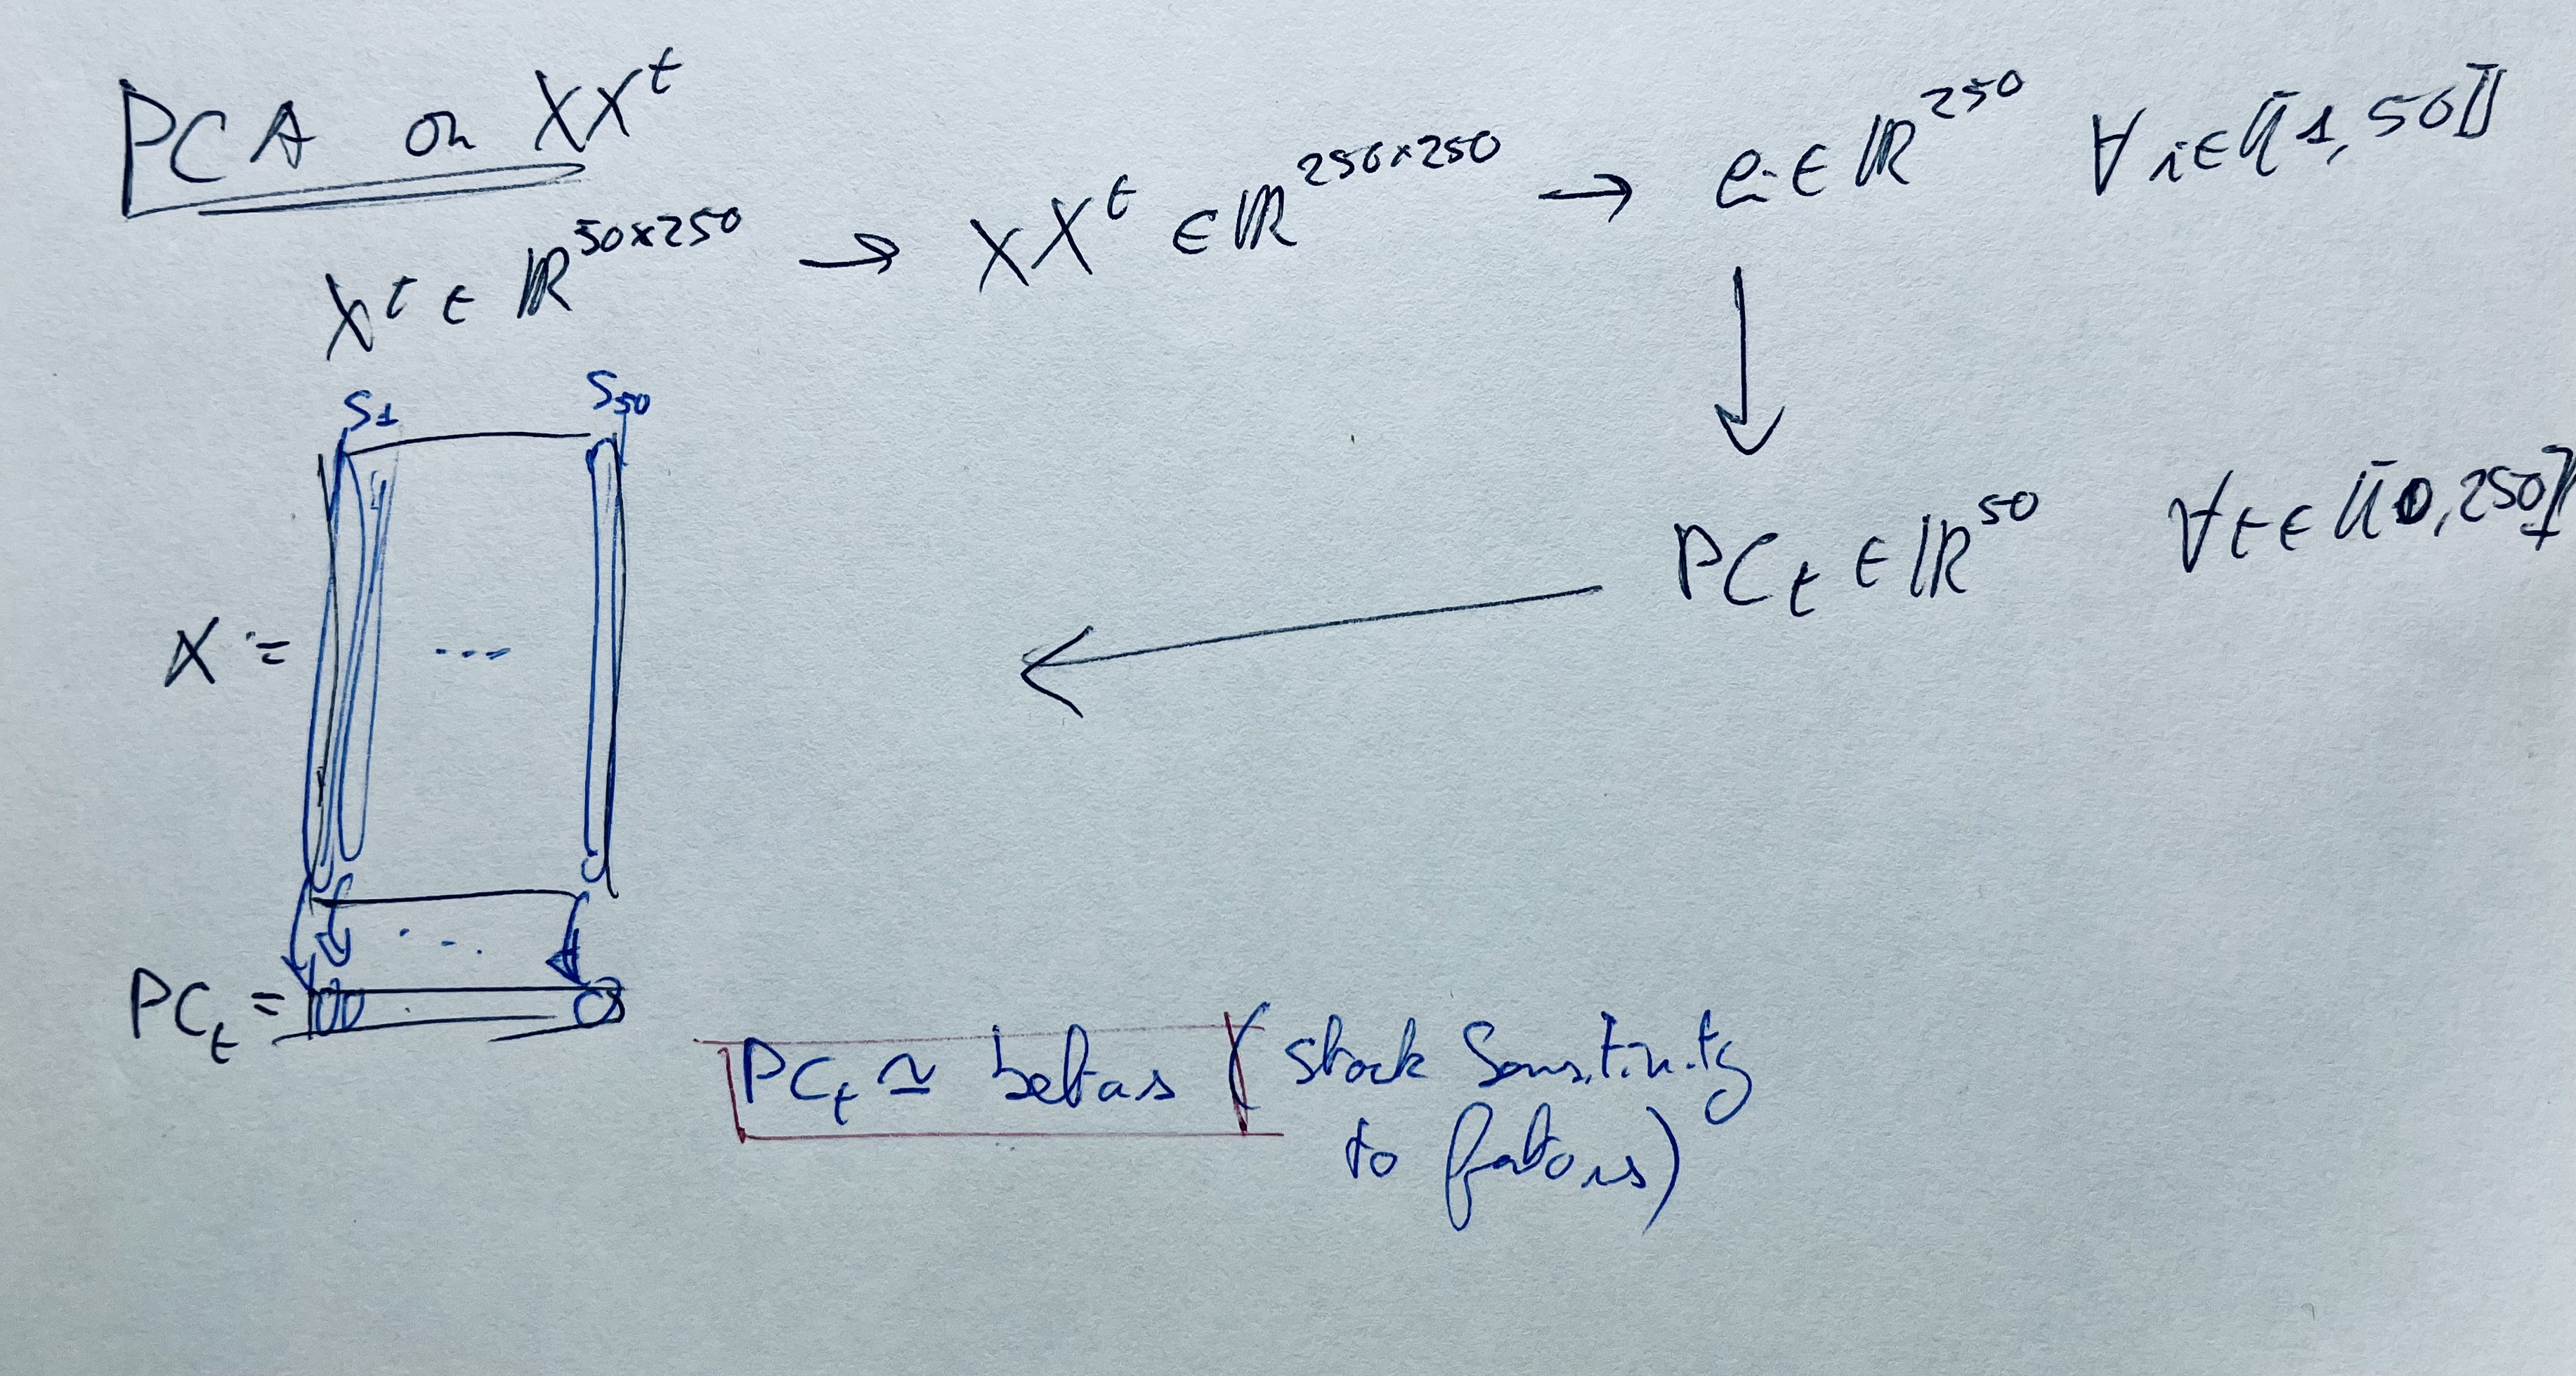 PCA on XX^t
X^t ∈ ℝ^{50×250} → XX^t ∈ ℝ^{250×250} → e_i ∈ ℝ^{250} ∀ i ∈ ⟦1, 50⟧
S_1 S_50
PC_t ∈ ℝ^{50} ∀ t ∈ ⟦0, 250⟧
X := ...
...
PC_t =
PC_t ≃ betas (stock Sensitivity
to factors)